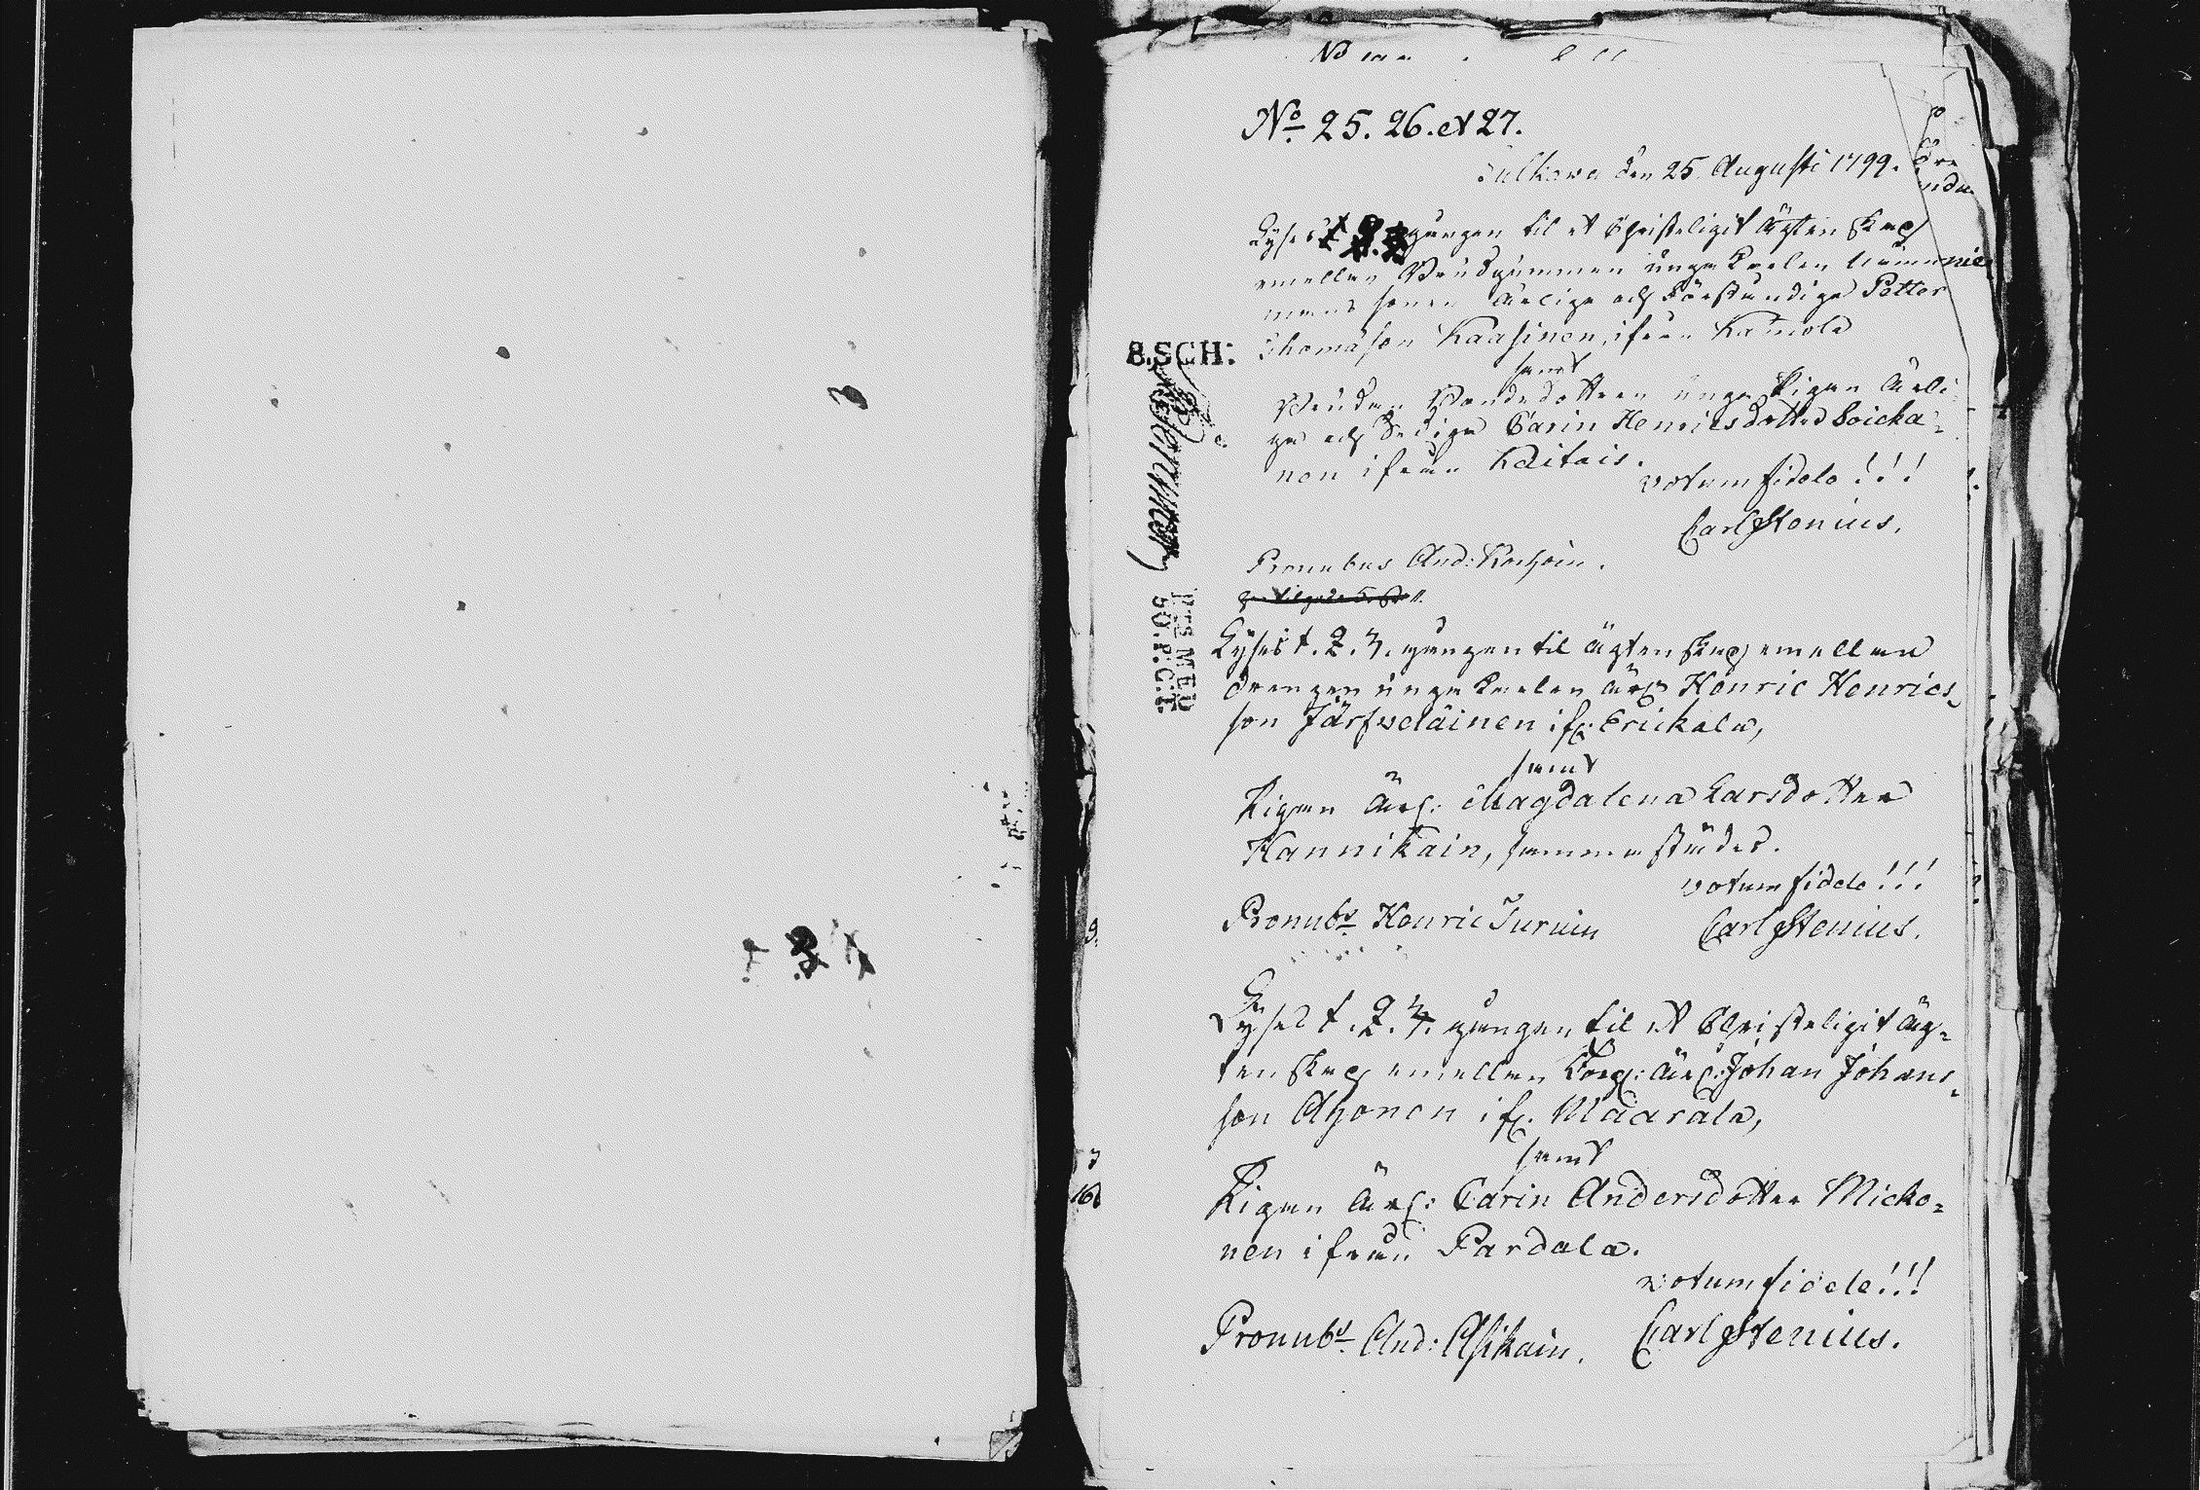 No 25. 26. et 27.
Sulkava den 25 Augusti 1799.
Lyses gången til et Christeligit ägtenskap
emellan Brudgummen unga Karlen Nämnde
mans sonen ärlige och Förståndige Petter
Thomasson Kaasinen, ifrån Kamola
samt
Bruden Bondedottren unga Pigan ärli-
ga och dediga Carin Henricsdotter Loicka-
nen ifrån Kaitais.
votum fidele!!!
Carl Stenius.
8.SCH:
Pronubus And: Karhain.
Lyses 1. 2. 3. gången til ägtenskap emellan
drengen unga Karlen ärl: Henric Henrics-
son Järfveläinen ifr. Erickala,
samt
Pigan ärl: Magdalena Larsdotter
Hannikain, sammastädes.
votum fidele!!!
Pronubs Henric Turuin
Carl Stenius.
50.P.C:T.
Lyses 1. 2. 3. gången til et Christeligit äg-
tenskap emellan Torp: ärl: Johan Johans-
son Ahonen ifr. Maarala,
samt
Pigan ärl: Carin Andersdotter Micko-
nen ifrån Pardala.
votum fidele!!!
Pronubs And: Asikain.
Carl Stenius.